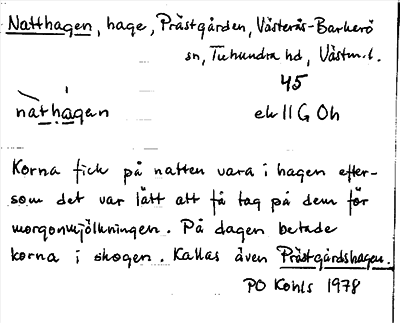 Natthagen, hage, Prästgården, Västerås-Barkarö
sn, Tuhundra hd, Västm.l.
45
nàthágen
ek 11 G 0h
Korna fick på natten vara i hagen efter-
som det var lätt att få tag på dem för
morgonmjölkningen. På dagen betade
korna i skogen. Kallas även Prästgårdshagen.
PO Kohls 1978